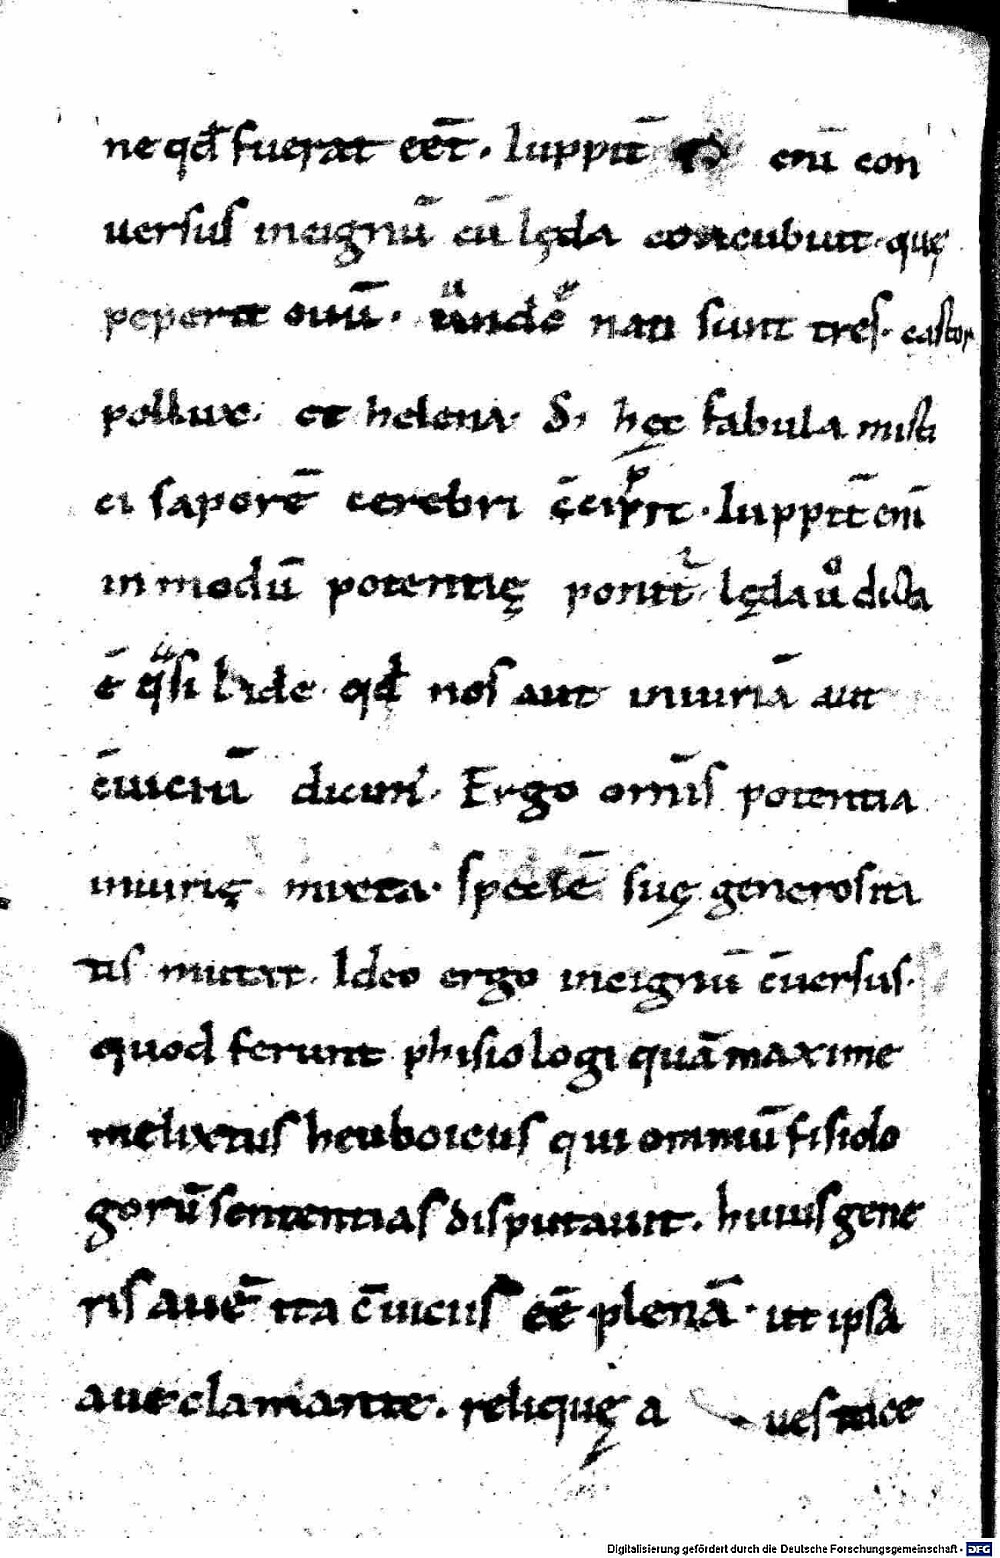 ne qđ fuerat eēt. Iuppit̄ enī con
uersus incignū cū lęda concubuit. quę
peperit ouū. unde nati sunt tres. castor
pollux. et helena. S; hęc fabula misti
ci saporē cerebri c̄cirp̄it. Iuppit̄ enī
in modū potentię ponit᷑. lęda uͦ dicta
ē qͣsi lide. qđ nos aut iniuriā aut
c̄uiciū dicim᾽. Ergo om̄is potentia
iniurię mixta. speciē suę generosita
tis mutat. Ideo ergo incignū c̄uersus.
quod ferunt phisiologi quā maxime
melixtus heuboicus qui omniū fisiolo
gorū sententias disputauit. huius gene
ris auē ita c̄uiciis eē plenā. ut ipsa
aue clamante. relique̜ a ues tace
Digitalisierung gefördert durch die Deutsche Forschungsgemeinschaft - DFG